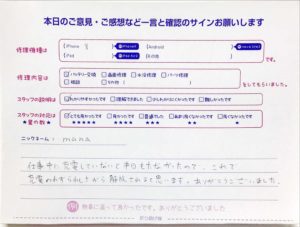 本日のご意見・ご感想など一言と確認のサインお願いします
修理機種は
iPhone 8
Android
iPad
その他
です。
修理内容は
バッテリー交換 画面修理 水没修理 パーツ修理
確認 その他
をしてもらいました。
スタッフの説明は
わかりやすかったです 理解できました 少しわかりにくかったです 難しかったです
スタッフの対応は
★星の数★
とても良かったです 良かったです 普通でした あまり良くなかったです 良くなかったです
★★★★★ ★★★★ ★★★ ★★ ★
ニックネーム: mana
仕事中に充電していないと半日もたなかったので、これで
充電のわずらわしさから解放されると思います。ありがとうございました。
修理に来って良かったです。ありがとうございました